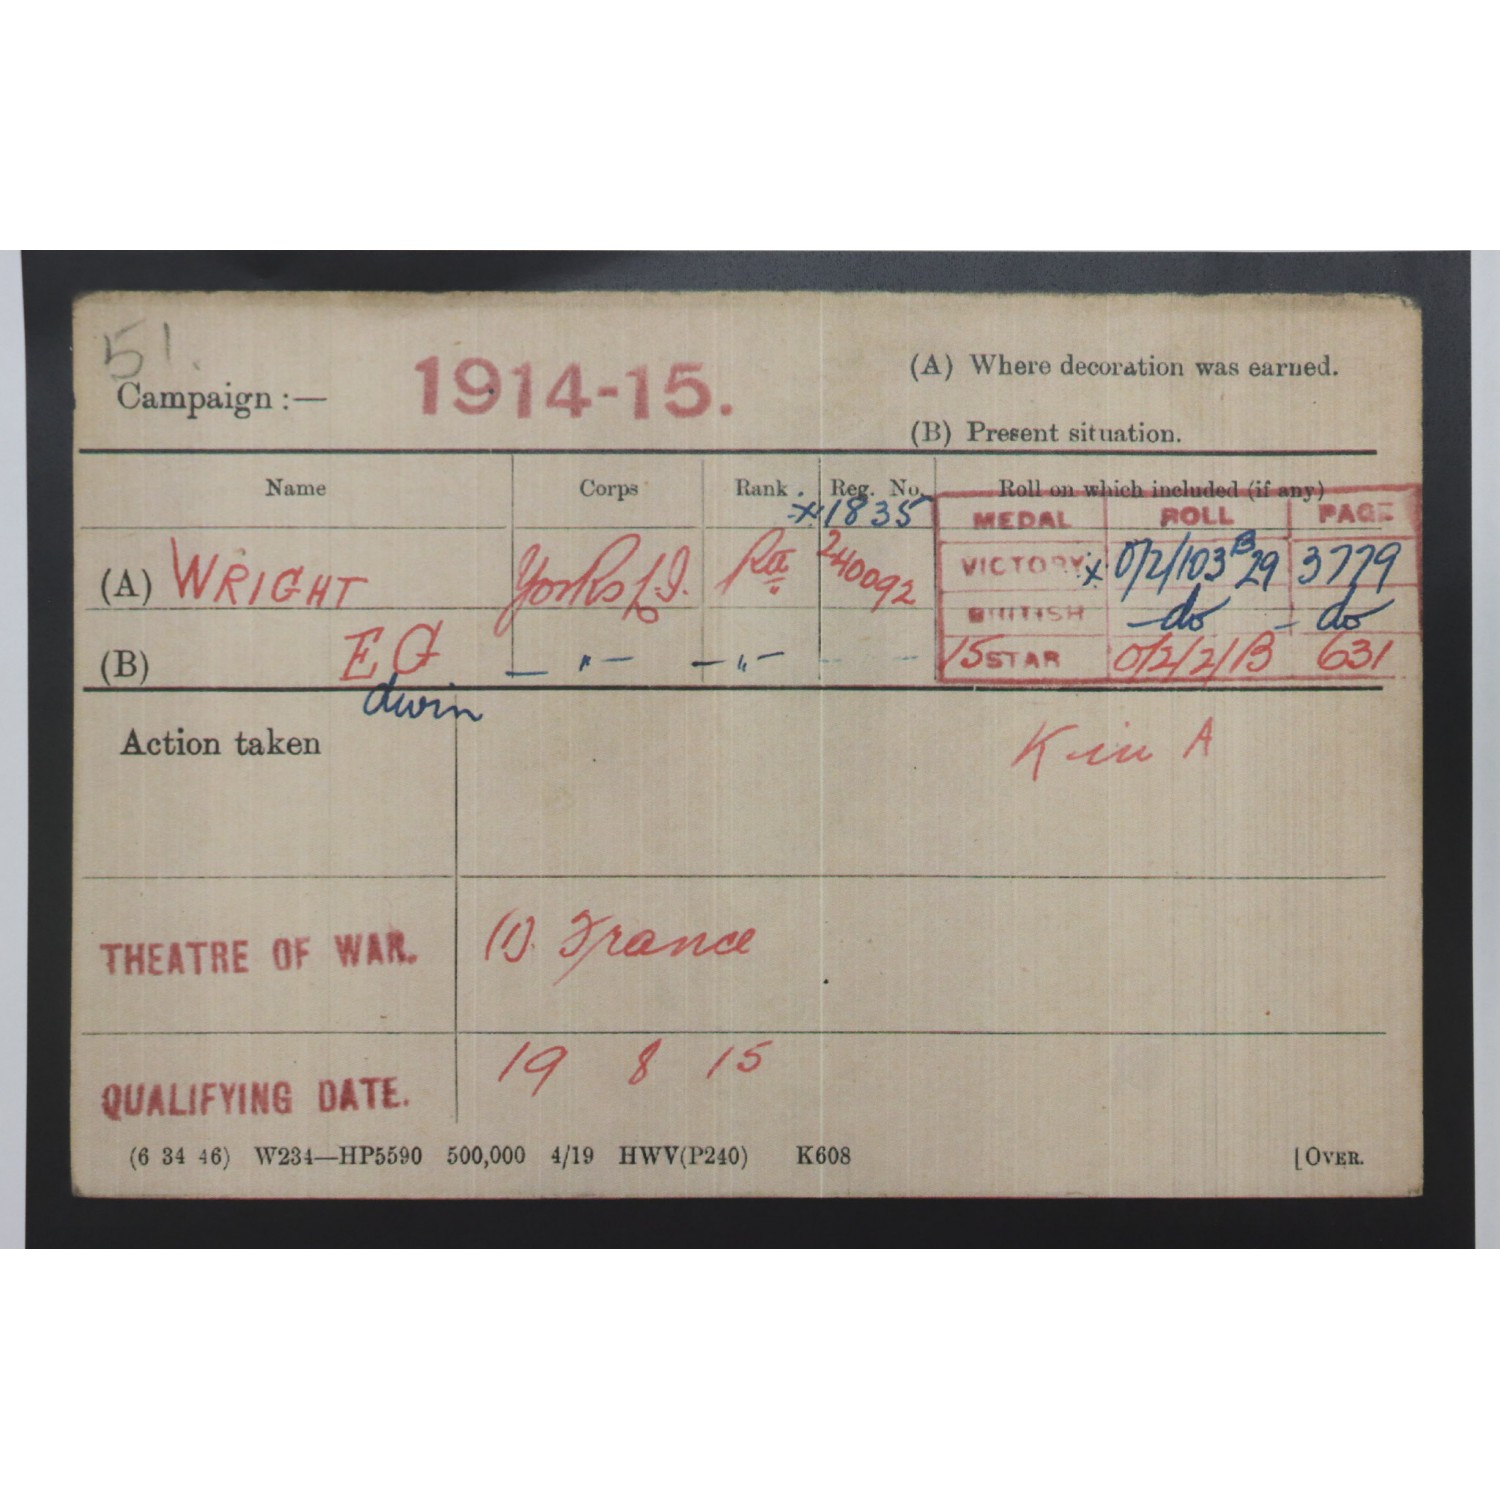 51.
Campaign :— 1914-15. (A) Where decoration was earned.
(B) Present situation.
Name Corps Rank. Reg. No. Roll on which included (if any)
x 1835 MEDAL ROLL PAGE
(A) WRIGHT Yorks L.I. Pte 240092 VICTORY x O/2/103 B 29 3779
BRITISH — do — do
(B) E G — " — — " — — — 15 STAR O/2/2/B 631
dwin
Action taken Kin A
THEATRE OF WAR. (1). France
QUALIFYING DATE. 19 8 15
(6 34 46) W234—HP5590 500,000 4/19 HWV(P240) K608 [OVER.